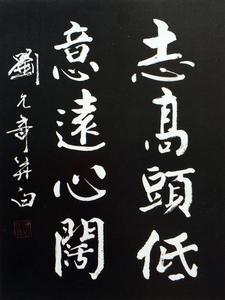 志高頭低
意遠心闊
劉允壽并白